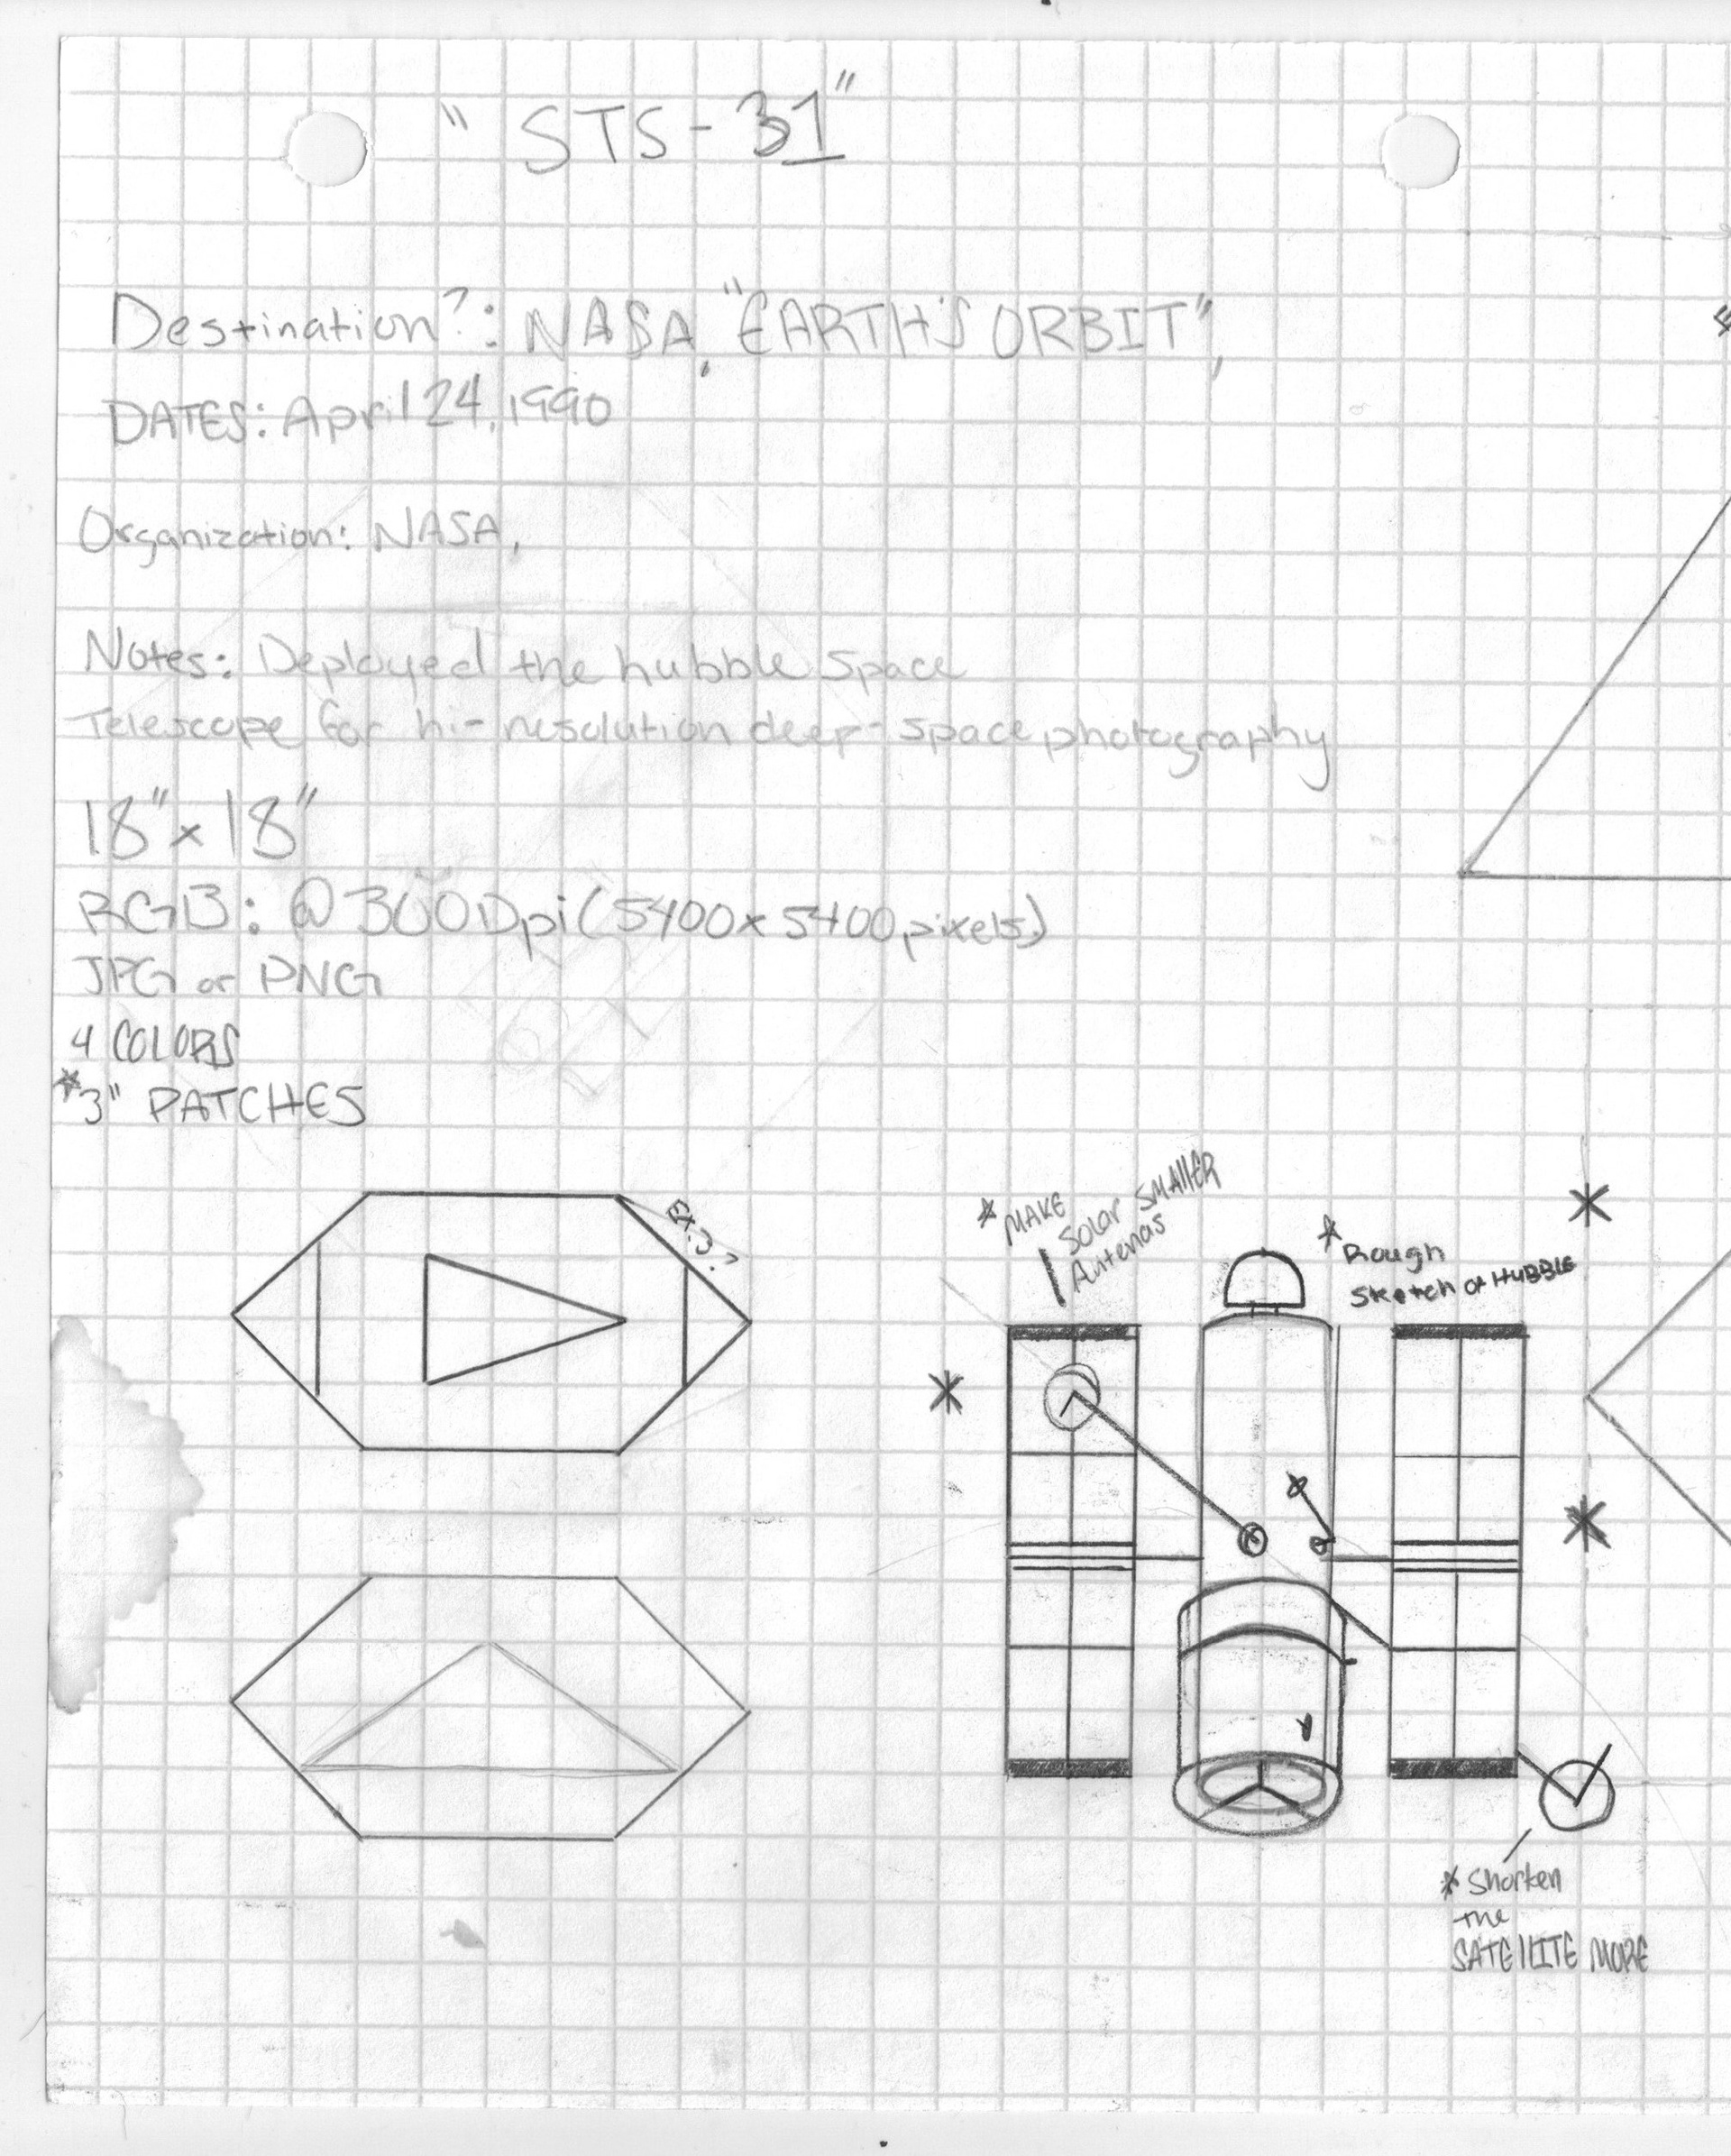 "STS-31"
Destination?: NASA, "EARTH'S ORBIT",
DATES: April 24, 1990
Organization: NASA,
Notes: Deployed the hubble Space
Telescope for hi-resolution deep-space photography
18" x 18"
RGB: @ 300Dpi (5400 x 5400 pixels)
JPG or PNG
4 COLORS
*3" PATCHES
EX. 3?
* MAKE
Solar SMALLER
Antenas
* Rough
Sketch of HUBBLE
* Shorten
the
SATELLITE MORE